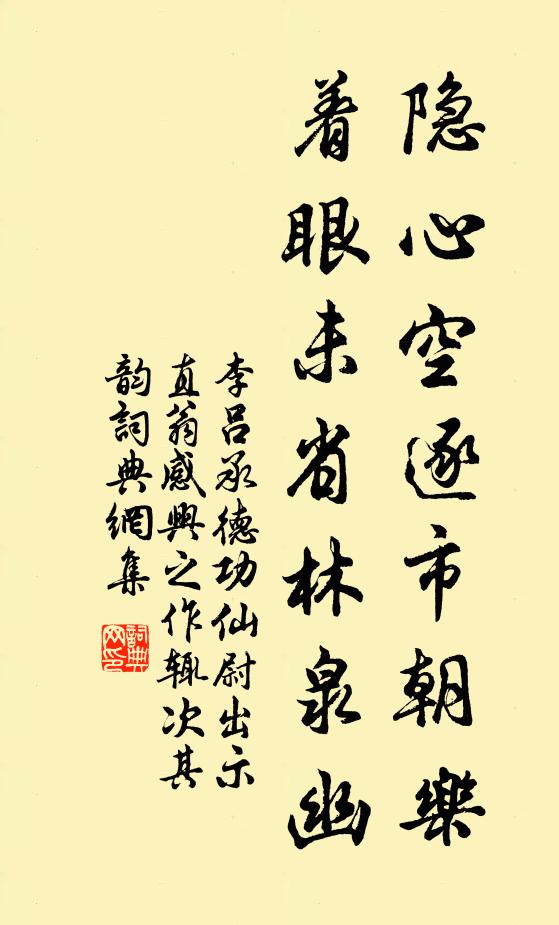 隐心空逐市朝樂
着眼未省林泉幽
李吕承德功仙尉出示
直翁感興之作輒次其
韵詞典網集
詞典
网印